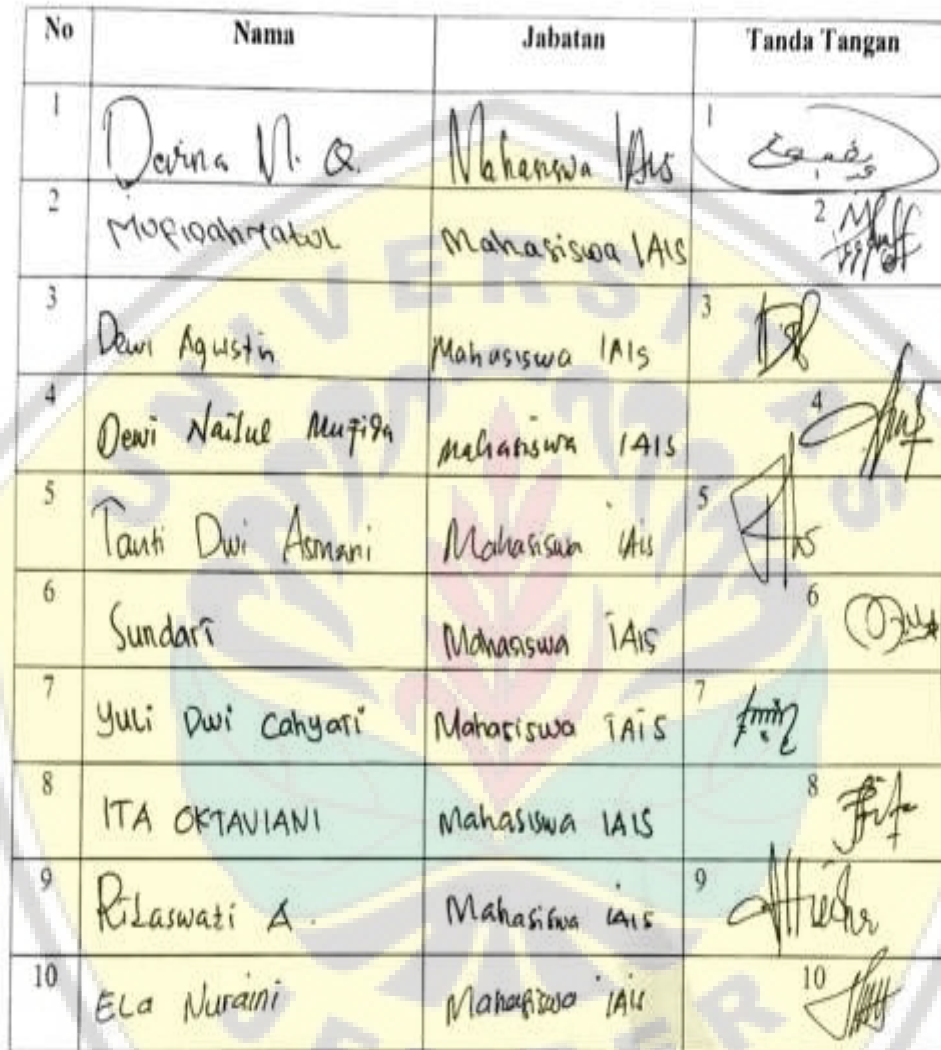 No Nama Jabatan Tanda Tangan
1 Devina N. Q. Mahasiswa IAIS 1
2 Mahasiswa IAIS 2
3 Dewi Agustin Mahasiswa IAIS 3
4 Dewi Nailul Mufida Mahasiswa IAIS 4
5 Tanti Dwi Asmani Mahasiswa IAIS 5
6 Sundari Mahasiswa IAIS 6
7 Yuli Dwi Cahyati Mahasiswa IAIS 7
8 ITA OKTAVIANI Mahasiswa IAIS 8
9 A. Mahasiswa IAIS 9
10 Ela Nuraini Mahasiswa IAIS 10
UNIVERSITAS